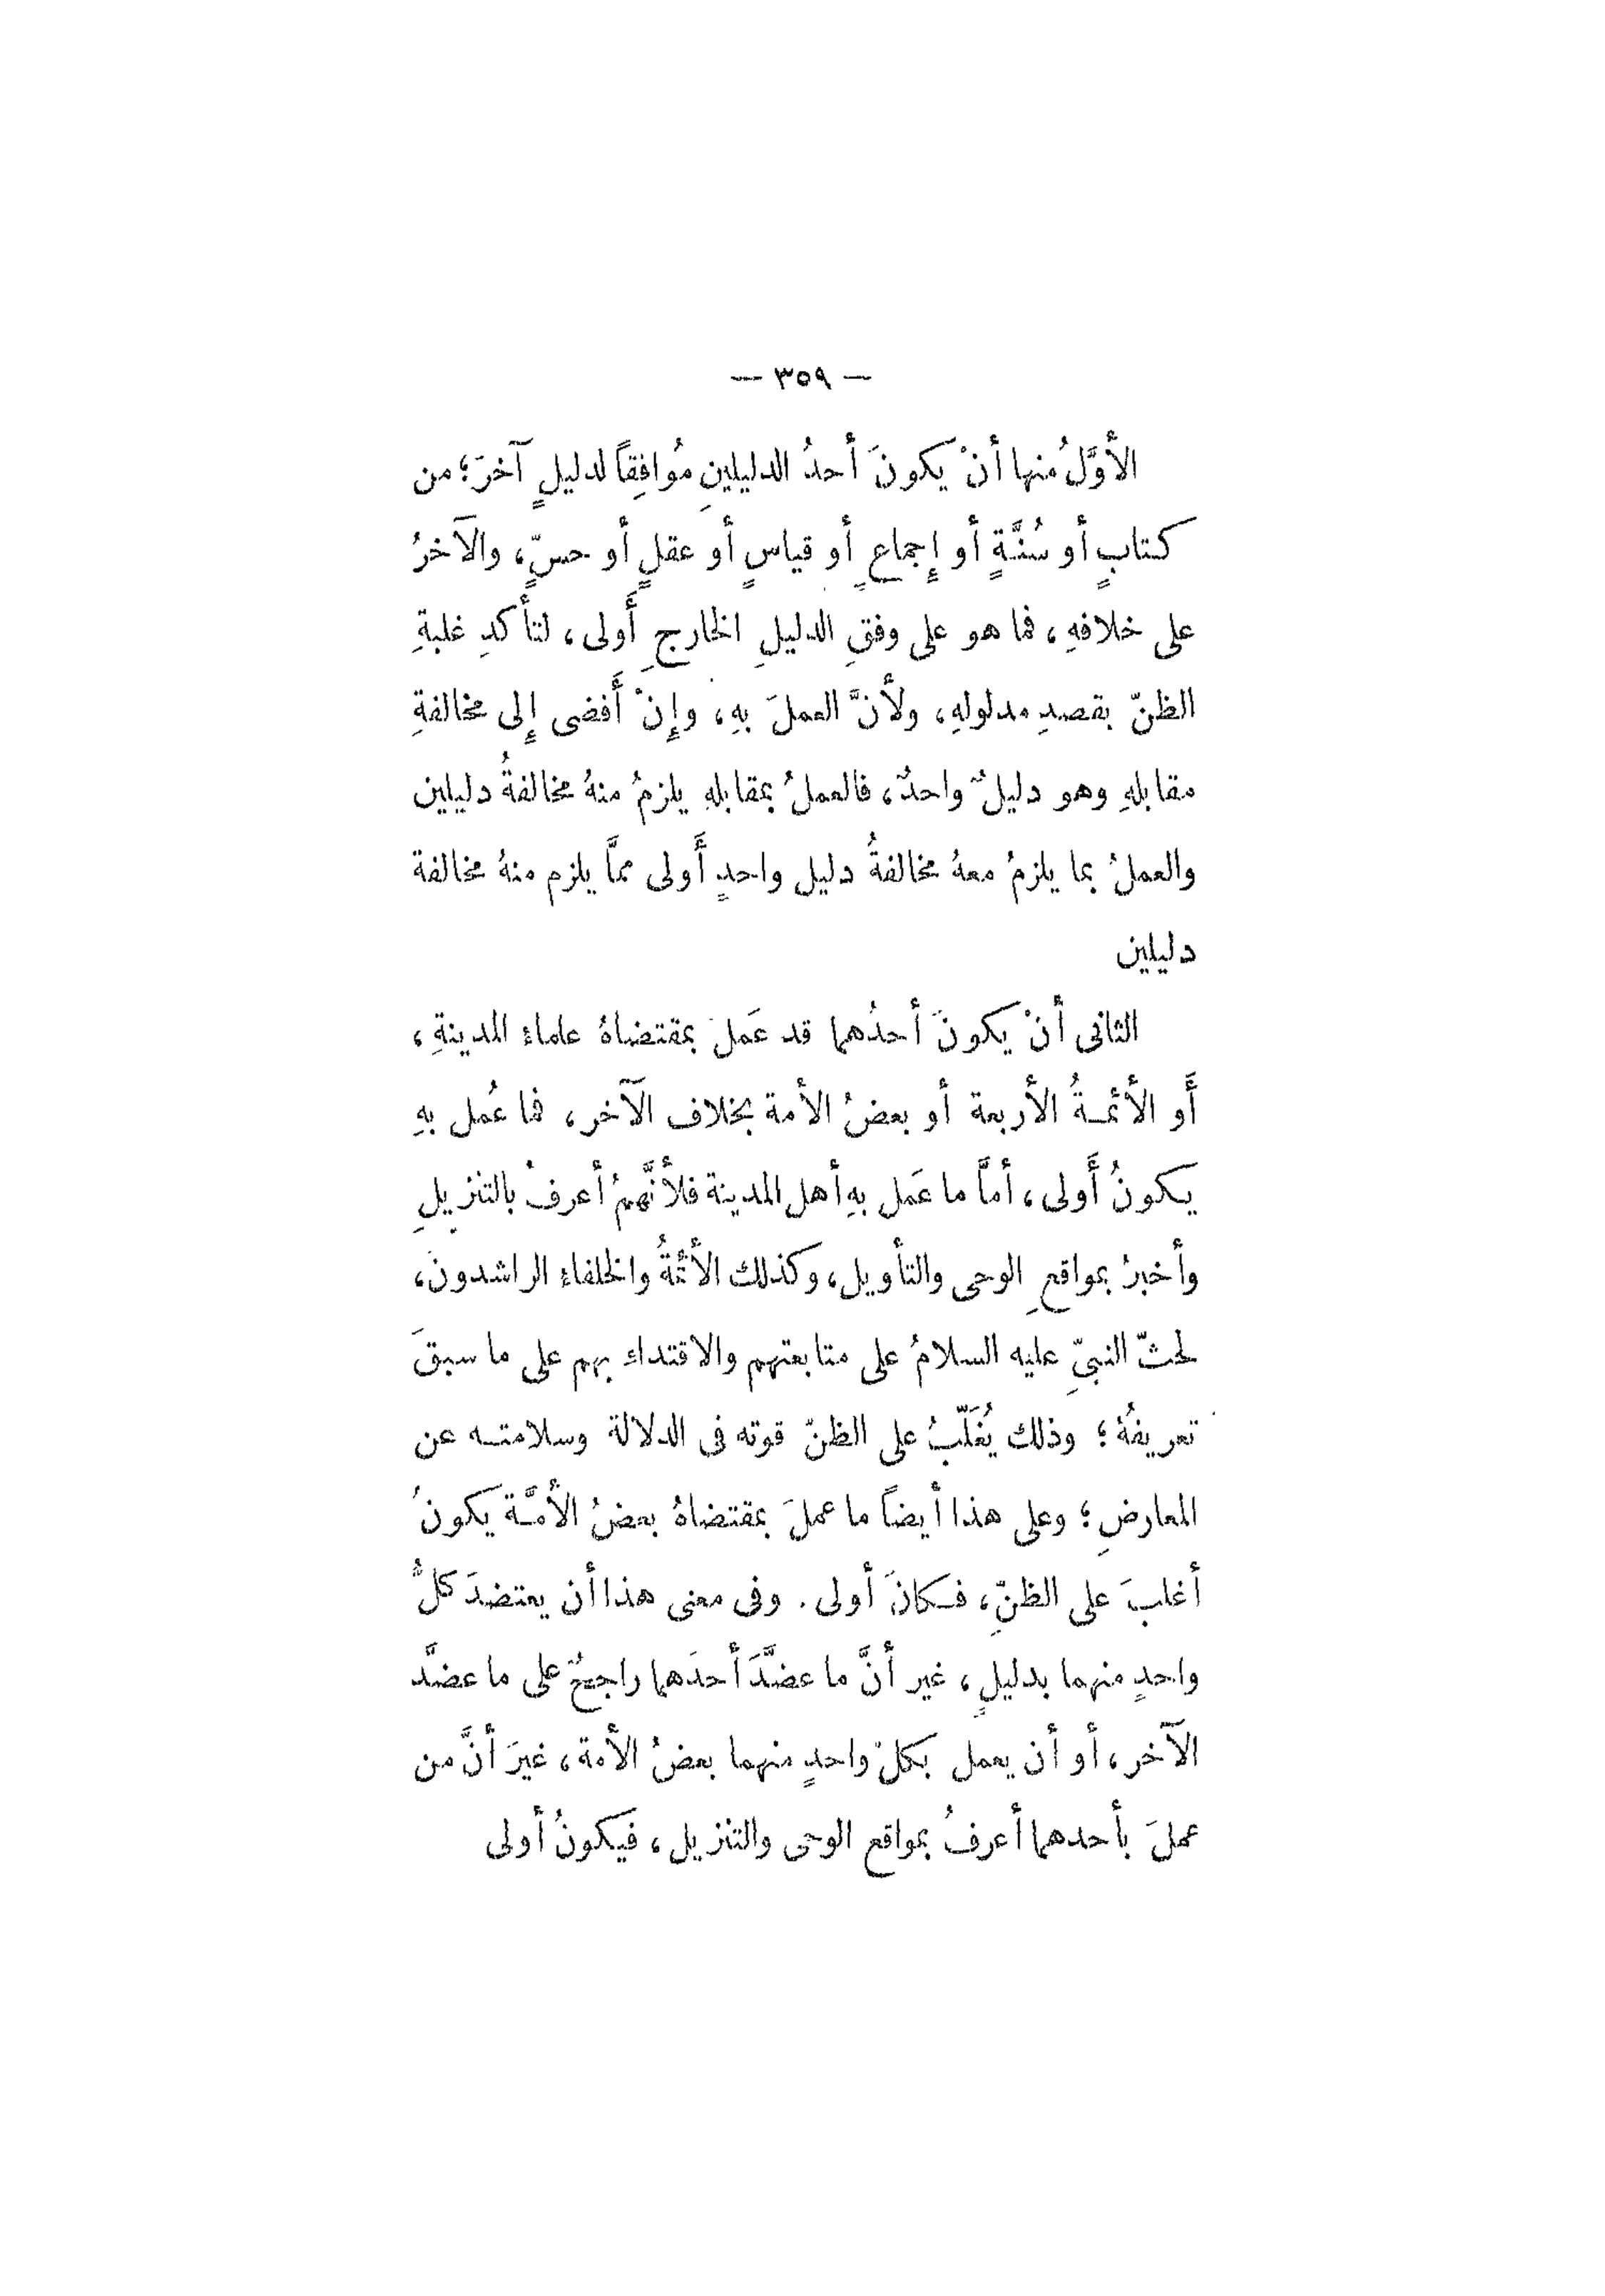 — ٣٥٩ —
الأوَّلُ منها أنْ يكونَ أحدُ الدليلينِ مُوافِقاً لدليلٍ آخرَ؛ من
كتابٍ أو سُنَّةٍ أو إِجماعٍ أو قياسٍ أو عقلٍ أو حسٍّ، والآخرُ
على خلافهِ، فما هو على وفقِ الدليلِ الخارجِ أَولى، لتأكدِ غلبةِ
الظنّ بقصدِ مدلولهِ، ولأنَّ العملَ بهِ، وإِنْ أَفضى إِلى مخالفةِ
مقابلهِ وهو دليلٌ واحدٌ، فالعملُ بمقابلهِ يلزمُ منهُ مخالفةُ دليلين
والعملُ بما يلزمُ معهُ مخالفةُ دليل واحدٍ أَولى ممَّا يلزم منهُ مخالفة
دليلين
الثانى أنْ يكونَ أحدُهما قد عَمل بمقتضاهُ علماء المدينةِ،
أَو الأئمةُ الأربعة أو بعضُ الأمة بخلاف الآخر، فما عُمل بهِ
يكونُ أَولى، أمَّا ما عَمل بهِ أهل المدينة فلأنَّهمُ أعرفُ بالتنزيلِ
وأخبرُ بمواقعِ الوحى والتأويل، وكذلك الأئمةُ والخلفاء الراشدونَ،
لحثّ النبيِّ عليه السلامُ على متابعتهم والاقتداء بهم على ما سبقَ
تعريفهُ؛ وذلك يُغَلّبُ على الظنّ قوته فى الدلالة وسلامته عن
المعارضِ؛ وعلى هذا أيضاً ما عملَ بمقتضاهُ بعضُ الأمَّة يكونُ
أغلبَ على الظنِّ، فكانَ أولى. وفى معنى هذا أن يعتضدَ كلُّ
واحدٍ منهما بدليلٍ، غير أنَّ ما عضَّدَ أحدَهما راجحٌ على ما عضَّد
الآخر، أو أن يعمل بكلّ واحدٍ منهما بعضُ الأمة، غيرَ أنَّ من
عملَ بأحدهما أعرفُ بمواقع الوحى والتنزيل، فيكونُ أولى